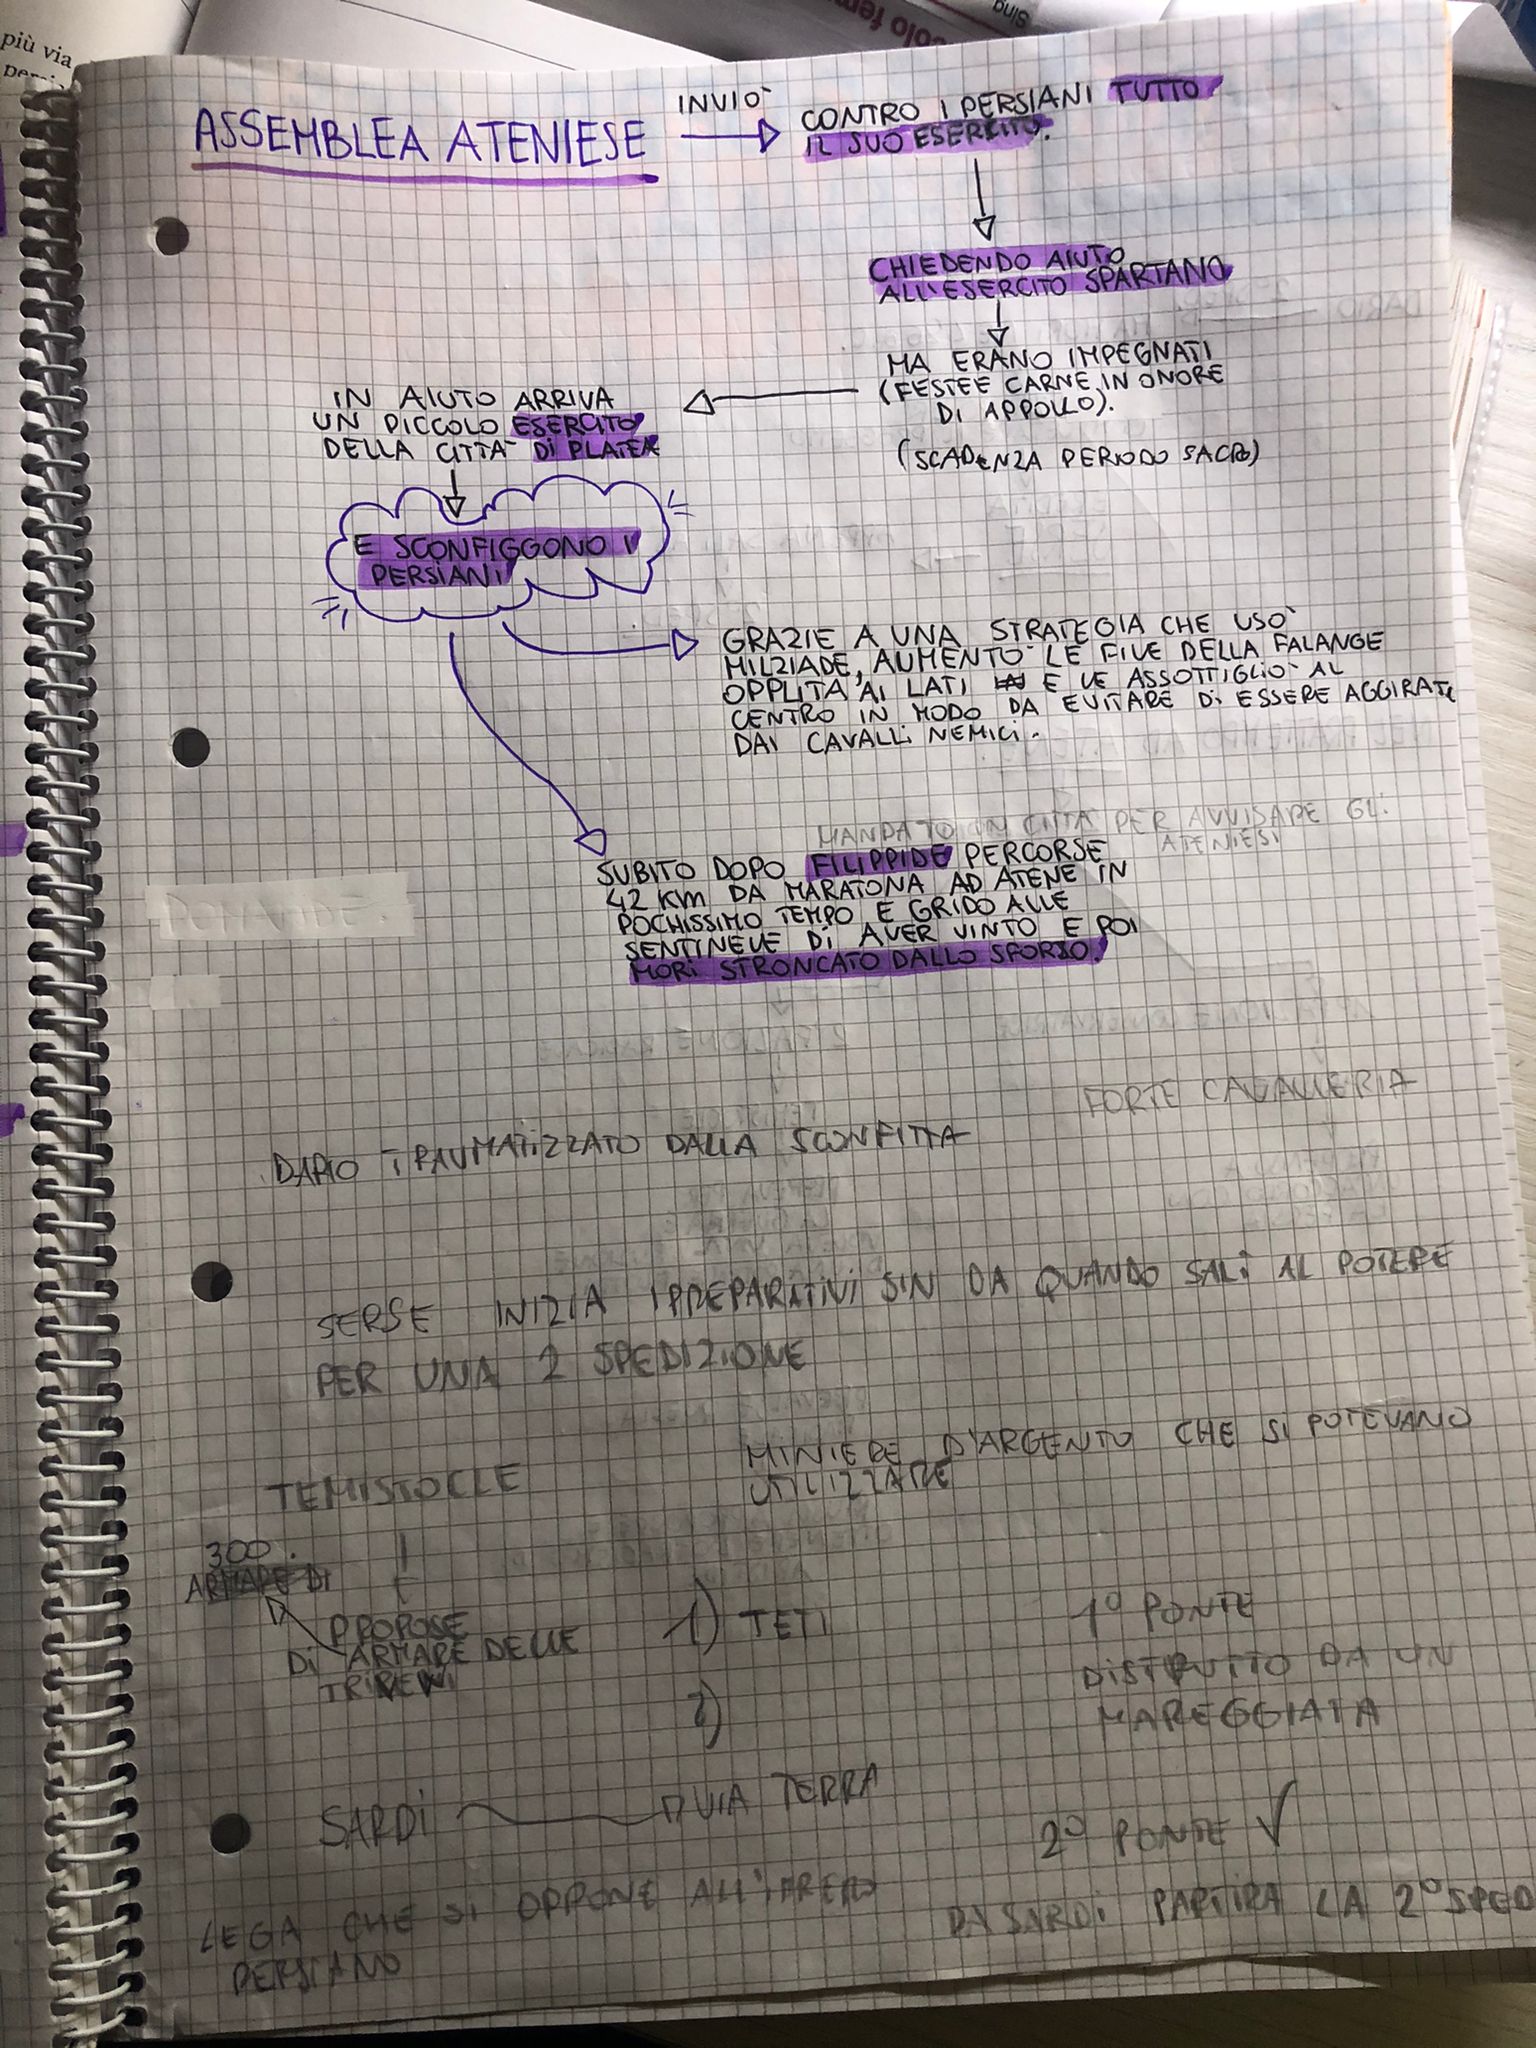 più via
ASSEMBLEA ATENIESE
INVIÒ
CONTRO I PERSIANI TUTTO
IL SUO ESERCITO.
CHIEDENDO AIUTO
ALL'ESERCITO SPARTANO
MA ERANO IMPEGNATI
(FESTE E CARNE, IN ONORE
DI APPOLLO).
(SCADENZA PERIODO SACRO)
IN AIUTO ARRIVA
UN PICCOLO ESERCITO
DELLA CITTÀ DI PLATEA
E SCONFIGGONO I
PERSIANI
GRAZIE A UNA STRATEGIA CHE USÒ
MILZIADE, AUMENTÒ LE FILE DELLA FALANGE
OPPLITA AI LATI E LE ASSOTTIGLIÒ AL
CENTRO IN MODO DA EVITARE DI ESSERE AGGIRATI
DAI CAVALLI NEMICI.
MANDATO IN CITTÀ PER AVVISARE GLI
ATENIESI
SUBITO DOPO FILIPPIDE PERCORSE
42 KM DA MARATONA AD ATENE IN
POCHISSIMO TEMPO E GRIDO ALLE
SENTINELLE DI AVER VINTO E POI
MORÌ STRONCATO DALLO SFORZO.
FORTE CAVALLERIA
DARIO TRAUMATIZZATO DALLA SCONFITTA
SERSE INIZIA I PREPARATIVI SIN DA QUANDO SALÌ AL POTERE
PER UNA 2 SPEDIZIONE
MINIERE D'ARGENTO CHE SI POTEVANO
UTILIZZARE
TEMISTOCLE
300.
ARMARE DI
PROPOSE
DI ARMARE DELLE
TRIREMI
1) TETI
2)
1° PONTE
DISTRUTTO DA UN
MAREGGIATA
SARDI VIA TERRA
2° PONTE ✓
LEGA CHE SI OPPONE ALL'IMPERO
PERSIANO
DA SARDI PARTIRA LA 2° SPED